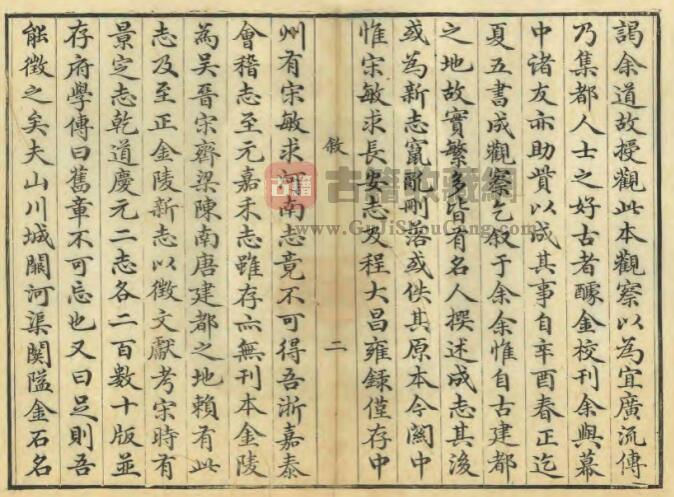 謁余道故授觀此本觀察以為宜廣流傳
乃集都人士之好古者醵金校刊余與幕
中诸友亦助貲以成其事自辛酉春正迄
夏五書成觀察乞叙于余余惟自古建都
之地故實繁多皆有名人撰述成志其後
或為新志竄亂刪落或佚其原本今闗中
惟宋敏求長安志及程大昌雍録僅存中
敘
二
州有宋敏求河南志竟不可得吾浙嘉泰
會稽志至元嘉禾志雖存亦無刊本金陵
為吴晉宋齊梁陳南唐建都之地賴有此
志及至正金陵新志以徵文獻考宋時有
景定志乾道慶元二志各二百數十版並
存府學傳曰舊章不可忘也又曰足則吾
能徵之矣夫山川城闕河渠関隘金石名
古籍收藏網
www.GuJiShouCang.com